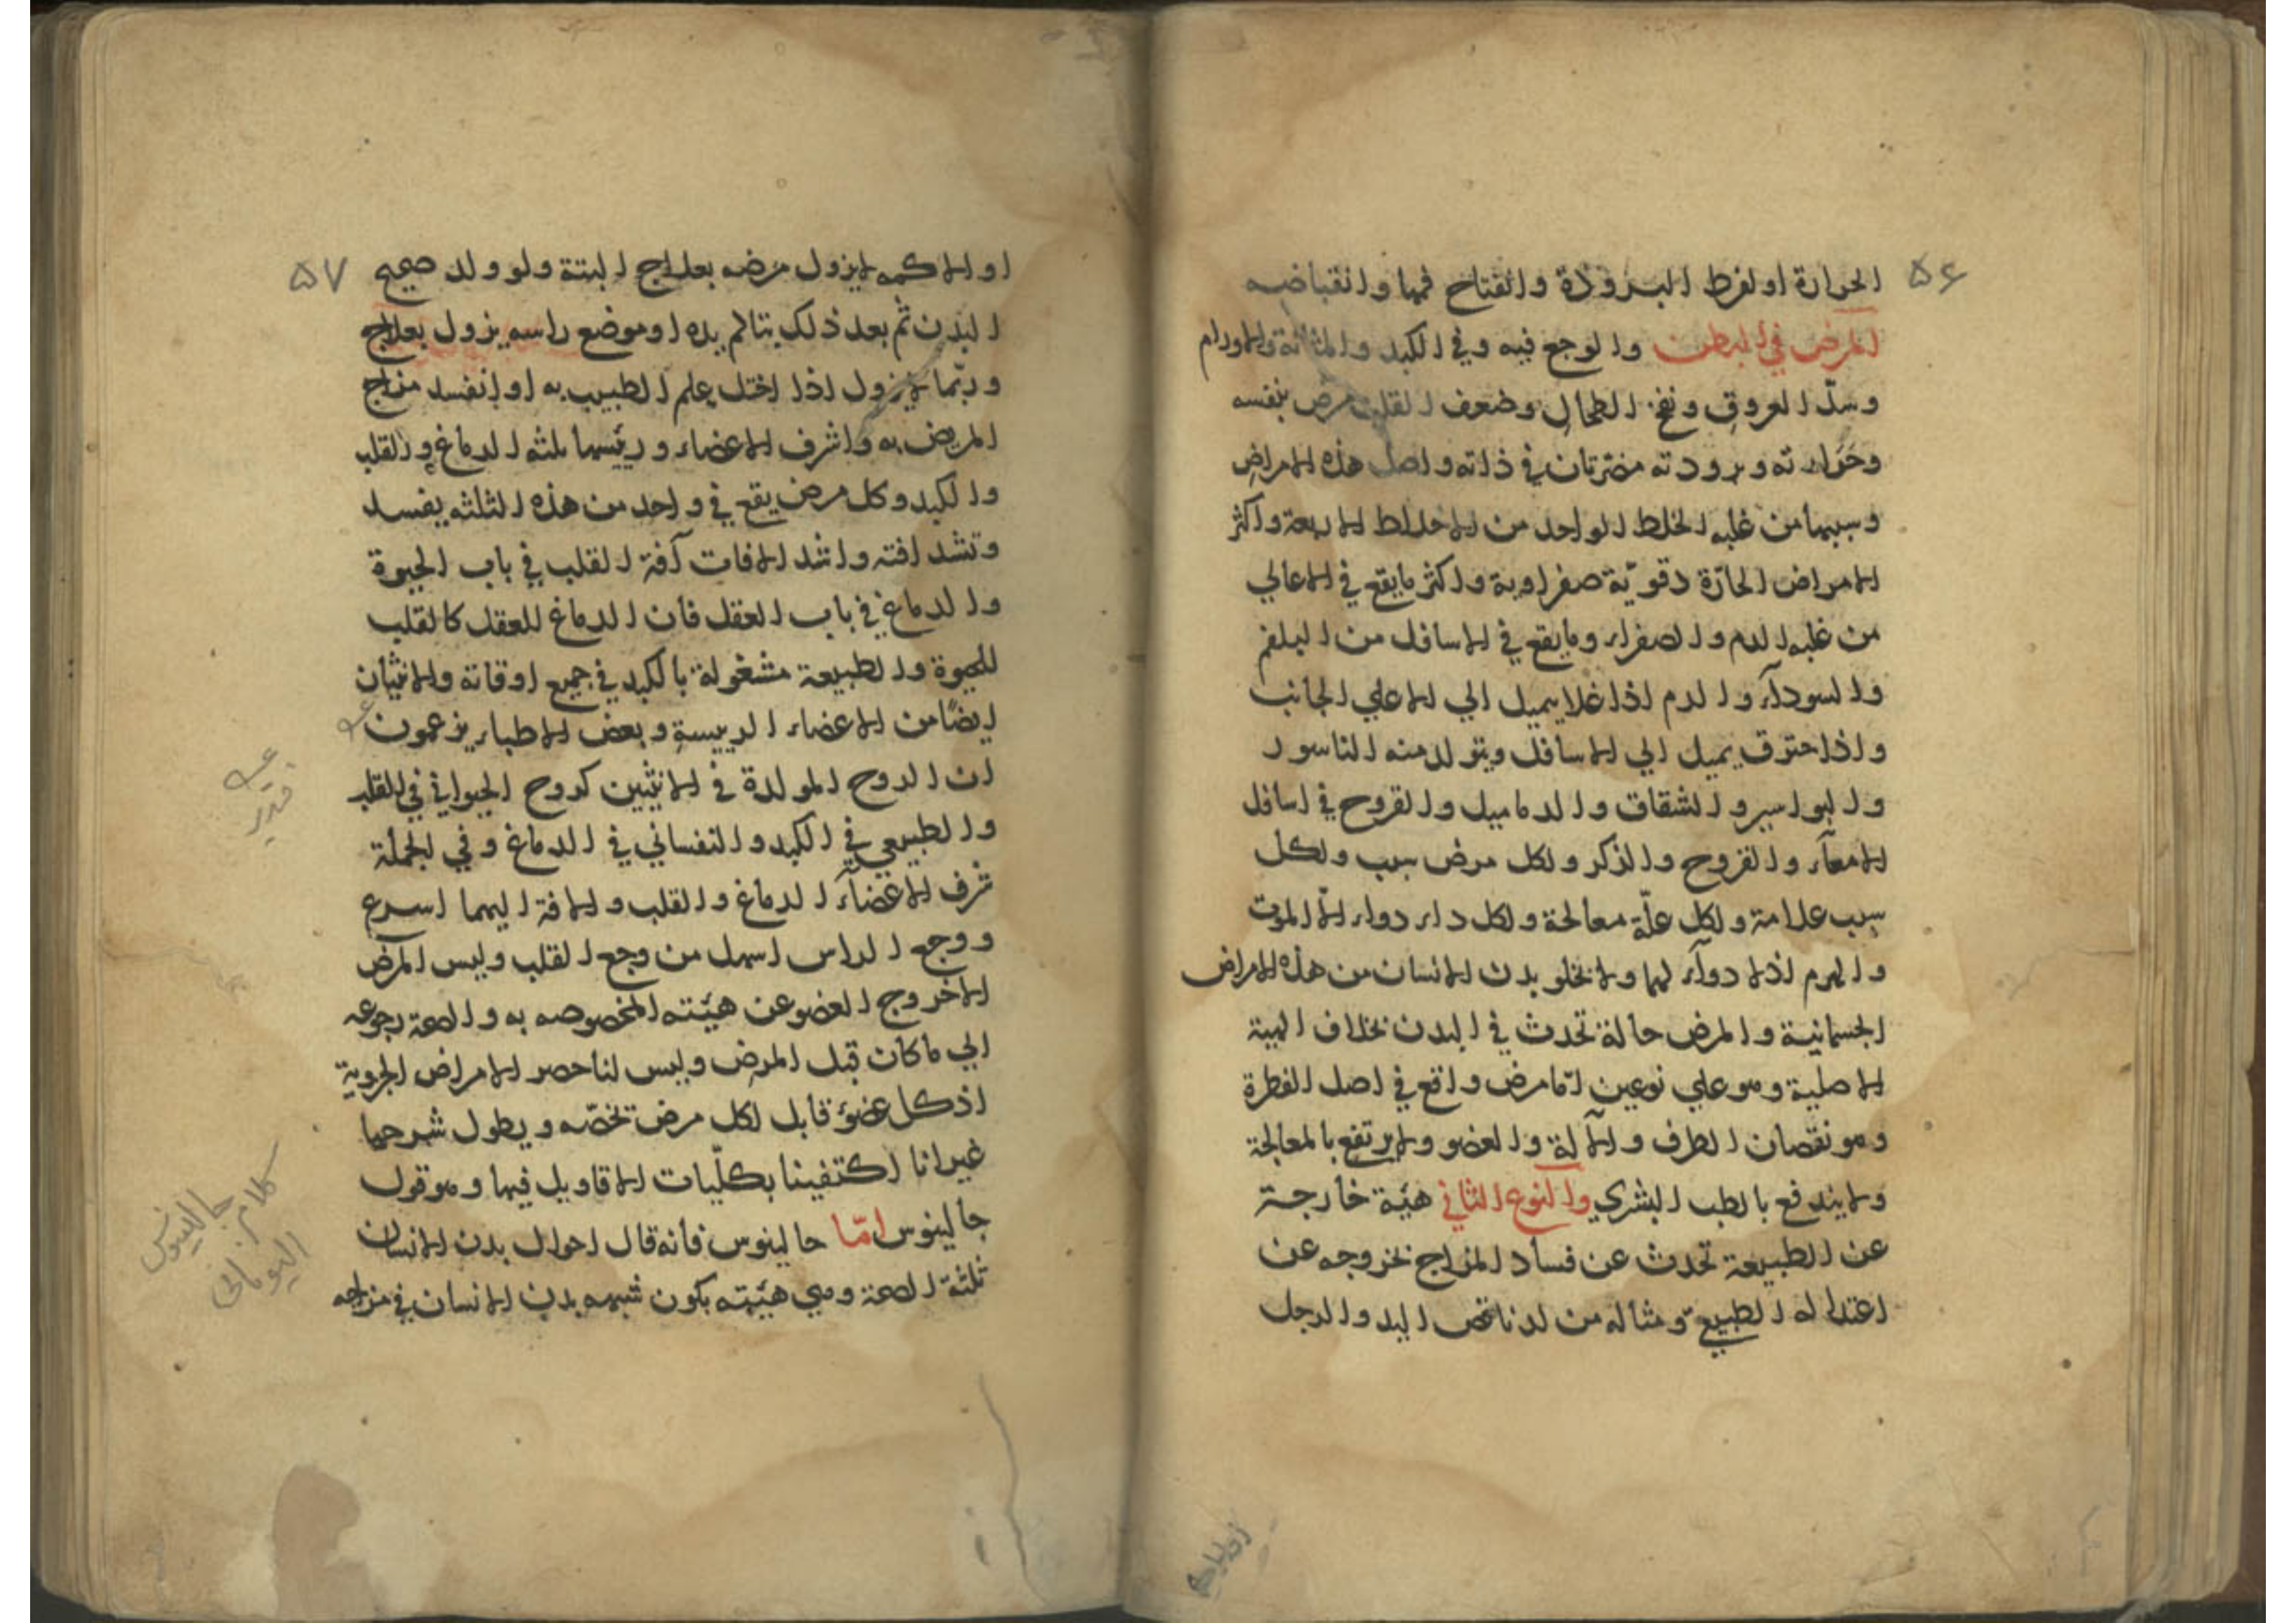 ۵۶
الحرارة او لفرط البرودة وانفتاح فمها وانقباضه
المرض في البطن والوجع فيه وفي الكبد والمثانة والاورام
وسدّ العروق ونفخ الطحال وضعف القلب مرض بنفسه
وحرارته وبرودته مضرتان في ذاته واصل هذه الامراض
وسببها من غلبه الخلط الواحد من الاخلاط الاربعة واكثر
الامراض الحارّة دقويّة صفراوية واكثر مايقع في الاعالي
من غلبه الدم والصفراء ومايقع في الاسافل من البلغم
والسودآء والدم اذا غلا يميل الي الاعلي الجانب
واذا حترق يميل الي الاسافل ويتولد منه الناسور
والبواسير والشقاق والدماميل والقروح في اسافل
الامعآء والقروح والذكر ولكل مرض سبب ولكل
سبب علامة ولكل علّة معالجة ولكل داء دواء الّا الموت
والهرم اذلا دوآء لهما ولا يخلو بدن الانسان من هذه الامراض
الجسمانية والمرض حالة تحدث في البدن بخلاف الهيئة
الاصلية وهو علي نوعين امّا مرض واقع في اصل الفطرة
وهو نقصان الطرف والآلة والعضو ولا يرتفع بالمعالجة
ولا يندفع بالطب البشري والنوع الثاني هيئة خارجة
عن الطبيعة تحدث عن فساد المزاج بخروجه عن
اعتداله الطبيعي ومثاله من لد ناقص اليد والرجل
۵۷
او الاكمه لا يزول مرضه بعلاج البتة ولو ولد صحيح
البدن ثم بعد ذلك يتالم يده او موضع راسه يزول بعلاج
وربّما لا يزول اذا اختل علم الطبيب به او انفسد مزاج
المريض به واشرف الاعضاء ورئيسها ثلثه الدماغ والقلب
والكبد وكل مرض يقع في واحد من هذه الثلثه يفسد
وتشد افته واشد الافات آفة القلب في باب الحيوة
والدماغ في باب العقل فان الدماغ للعقل كالقلب
للحيوة والطبيعة مشغولة بالكبد في جميع اوقاته والانثيان
ايضًا من الاعضاء الرييسة وبعض الاطباء يزعمون
ان الروح المولدة في الانثيين كروح الحيواني في القلب
والطبيعي في الكبد والنفساني في الدماغ وفي الجملة
شرف الاعضآء الدماغ والقلب والافة اليهما اسرع
ووجع الراس اسهل من وجع القلب وليس المرض
الاخروج العضو عن هيئته المخصوصه به والصحة رجوعه
الي ماكان قبل المرض وليس لنا حصر الامراض الجزوية
اذ كل عضو قابل لكل مرض تخصّه ويطول شرحها
غير انا اكتفينا بكلّيات الاقاويل فيها وهو قول
جالينوس امّا جالينوس فانه قال احوال بدن الانسان
ثلثة الصحة وهي هيئته بكون شبهه بدن الانسان في مزاجه
كلام جالينوس
اليوناني